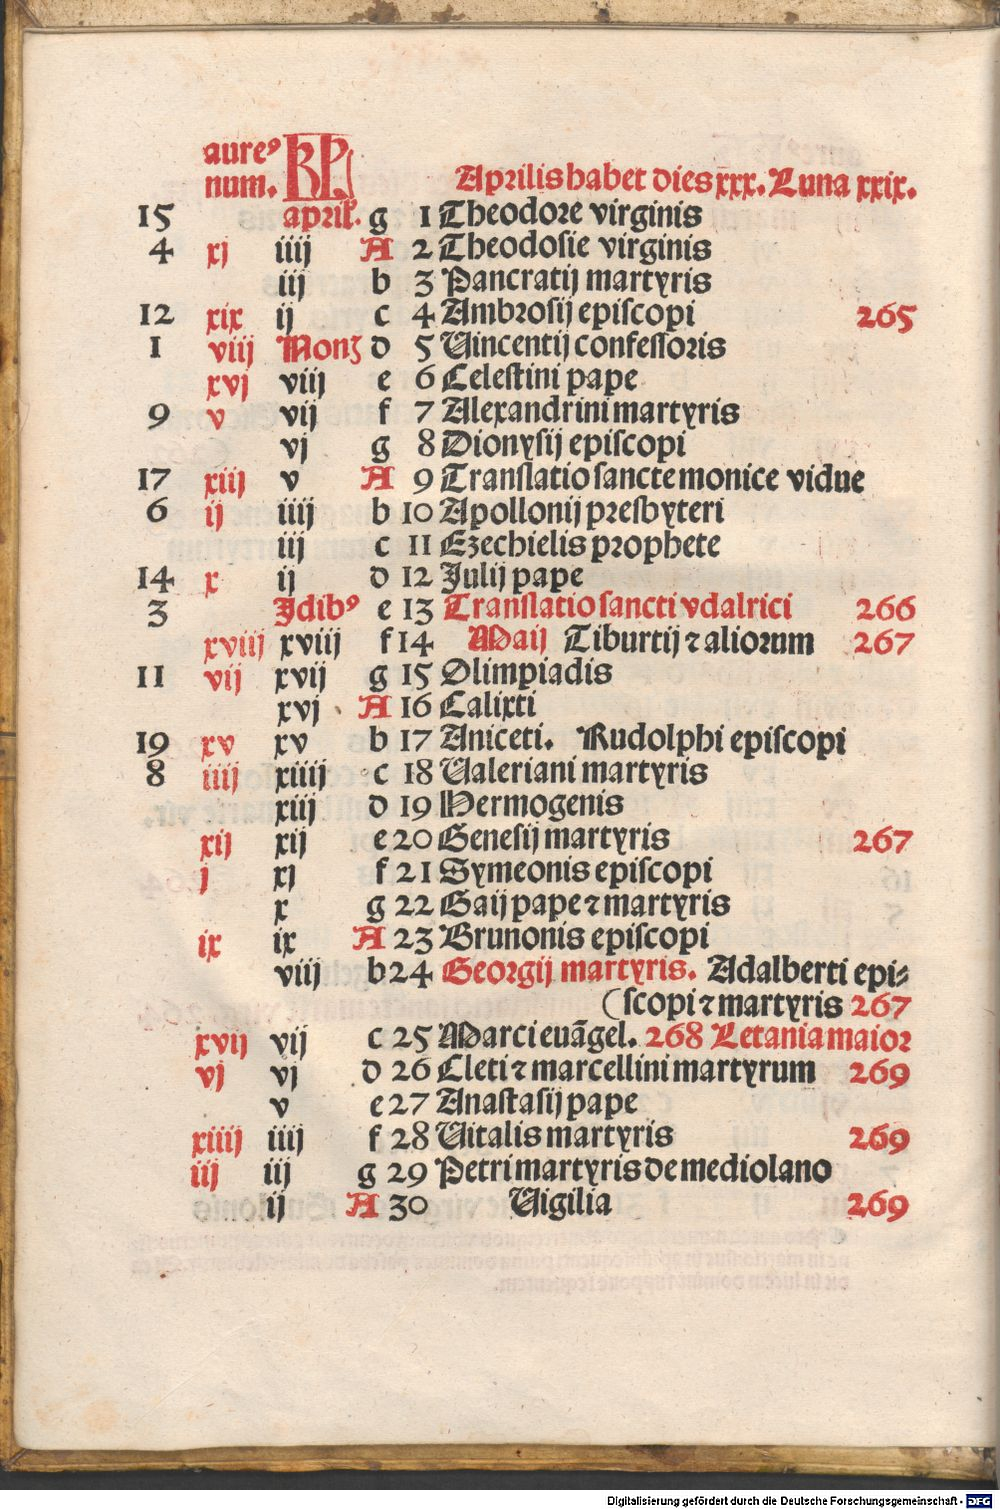 aureꝰ KL
num. Aprilis habet dies xxx. Luna xxix.
15 april. g 1 Theodore virginis
4 xj iiij A 2 Theodosie virginis
iij b 3 Pancratij martyris
12 xix ij c 4 Ambrosij episcopi 265
1 viij Nonꝫ d 5 Uincentij confessoris
xvj viij e 6 Celestini pape
9 v vij f 7 Alexandrini martyris
vj g 8 Dionysij episcopi
17 xiij v A 9 Translatio sancte monice vidue
6 ij iiij b 10 Apollonij presbyteri
iij c 11 Ezechielis prophete
14 x ij d 12 Julij pape
3 Jdibꝰ e 13 Translatio sancti vdalrici 266
xviij xviij f 14 Maij Tiburtij ⁊ aliorum 267
11 vij xvij g 15 Olimpiadis
xvj A 16 Calixti
19 xv xv b 17 Aniceti. Rudolphi episcopi
8 iiij xiiij c 18 Ualeriani martyris
xiij d 19 Hermogenis
xij xij e 20 Genesij martyris 267
j xj f 21 Symeonis episcopi
x g 22 Gaij pape ⁊ martyris
ix ix A 23 Brunonis episcopi
viij b 24 Georgij martyris. Adalberti epi⸗
(scopi ⁊ martyris 267
xvij vij c 25 Marci euãgel. 268 Letania maior
vj vj d 26 Cleti ⁊ marcellini martyrum 269
v e 27 Anastasij pape
xiiij iiij f 28 Uitalis martyris 269
iij iij g 29 Petri martyris de mediolano
ij A 30 Uigilia 269
Digitalisierung gefördert durch die Deutsche Forschungsgemeinschaft - DFG